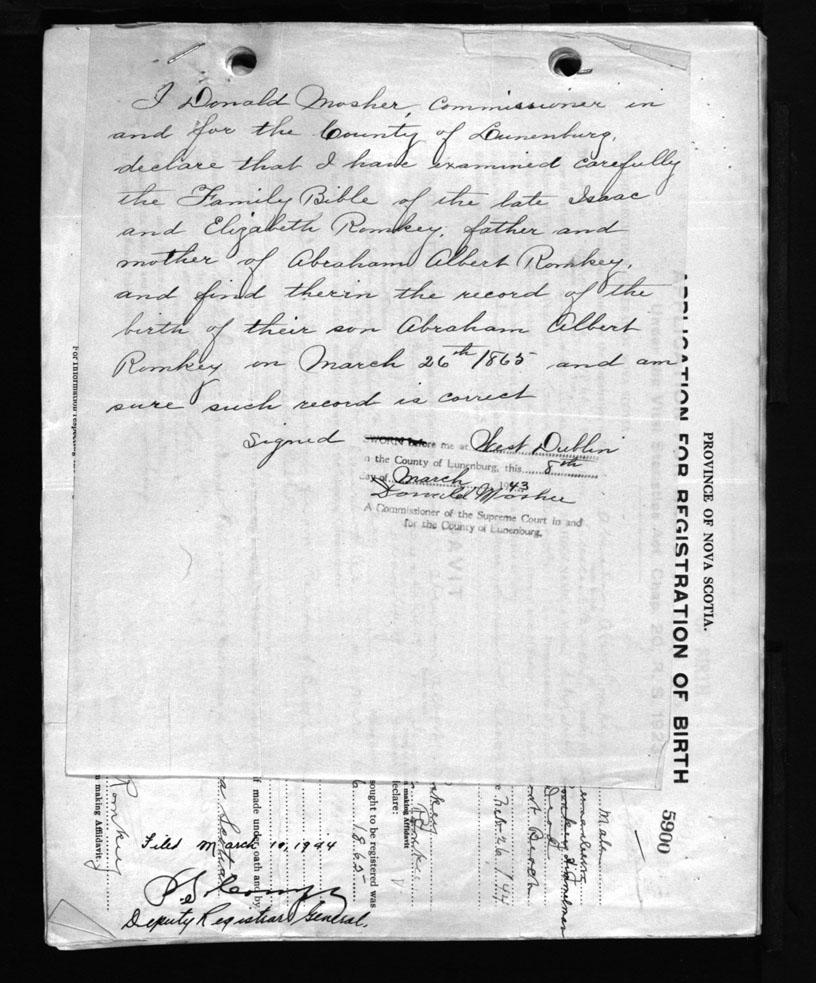 I Donald Mosher, Commissioner in
and for the County of Lunenburg,
declare that I have examined carefully
the Family Bible of the late Isaac
and Elizabeth Romkey, father and
mother of Abraham Albert Romkey,
and find therin the record of the
birth of their son Abraham Albert
Romkey on March 26th 1865 and am
sure such record is correct
Signed
SWORN before me at West Dublin
in the County of Lunenburg, this 8th
day of March 1943
Donald Mosher
A Commissioner of the Supreme Court in and
for the County of Lunenburg.
PROVINCE OF NOVA SCOTIA.
APPLICATION FOR REGISTRATION OF BIRTH
5900
Male
Feb. 26/44
sought to be registered was
1865
declare:
making Affidavit
if made under oath and by
Romkey
making Affidavit.
For information respecting
Filed March 10, 1944
Deputy Registrar General.